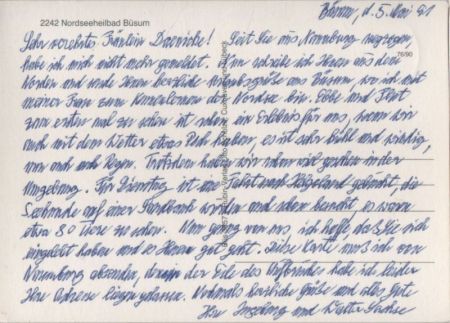 2242 Nordseeheilbad Büsum
Büsum, d. 5. Mai 91
76/90
Sehr verehrtes Fräulein ! Seit Sie aus Naumburg weggezogen,
habe ich mich nicht mehr gemeldet. Nun schreibe ich Ihnen aus dem
Norden und sende Ihnen herzliche Urlaubsgrüße aus Büsum, wo ich mit
meiner Frau zum Kennenlernen der Nordsee bin. Ebbe und Flut
zum ersten mal zu sehen ist schon ein Erlebnis für uns, wenn wir
auch mit dem Wetter etwas Pech haben, es ist sehr kühl und windig,
nun auch noch Regen. Trotzdem haben wir schon viel gesehen in der
Umgebung. Für Dienstag ist eine Fahrt nach Helgoland gebucht, die
Seehunde auf einer Sandbank wurden auch schon besucht, es waren
etwa 80 Tiere zu sehen. Nun genug von uns, ich hoffe, daß Sie sich
eingelebt haben und es Ihnen gut geht. Diese Karte muß ich von
Naumburg absenden, denn in der Eile des Aufbruches habe ich leider
Ihre Adresse liegen gelassen. Nochmals herzliche Grüße und alles Gute
Ihre Ingeborg und Walter